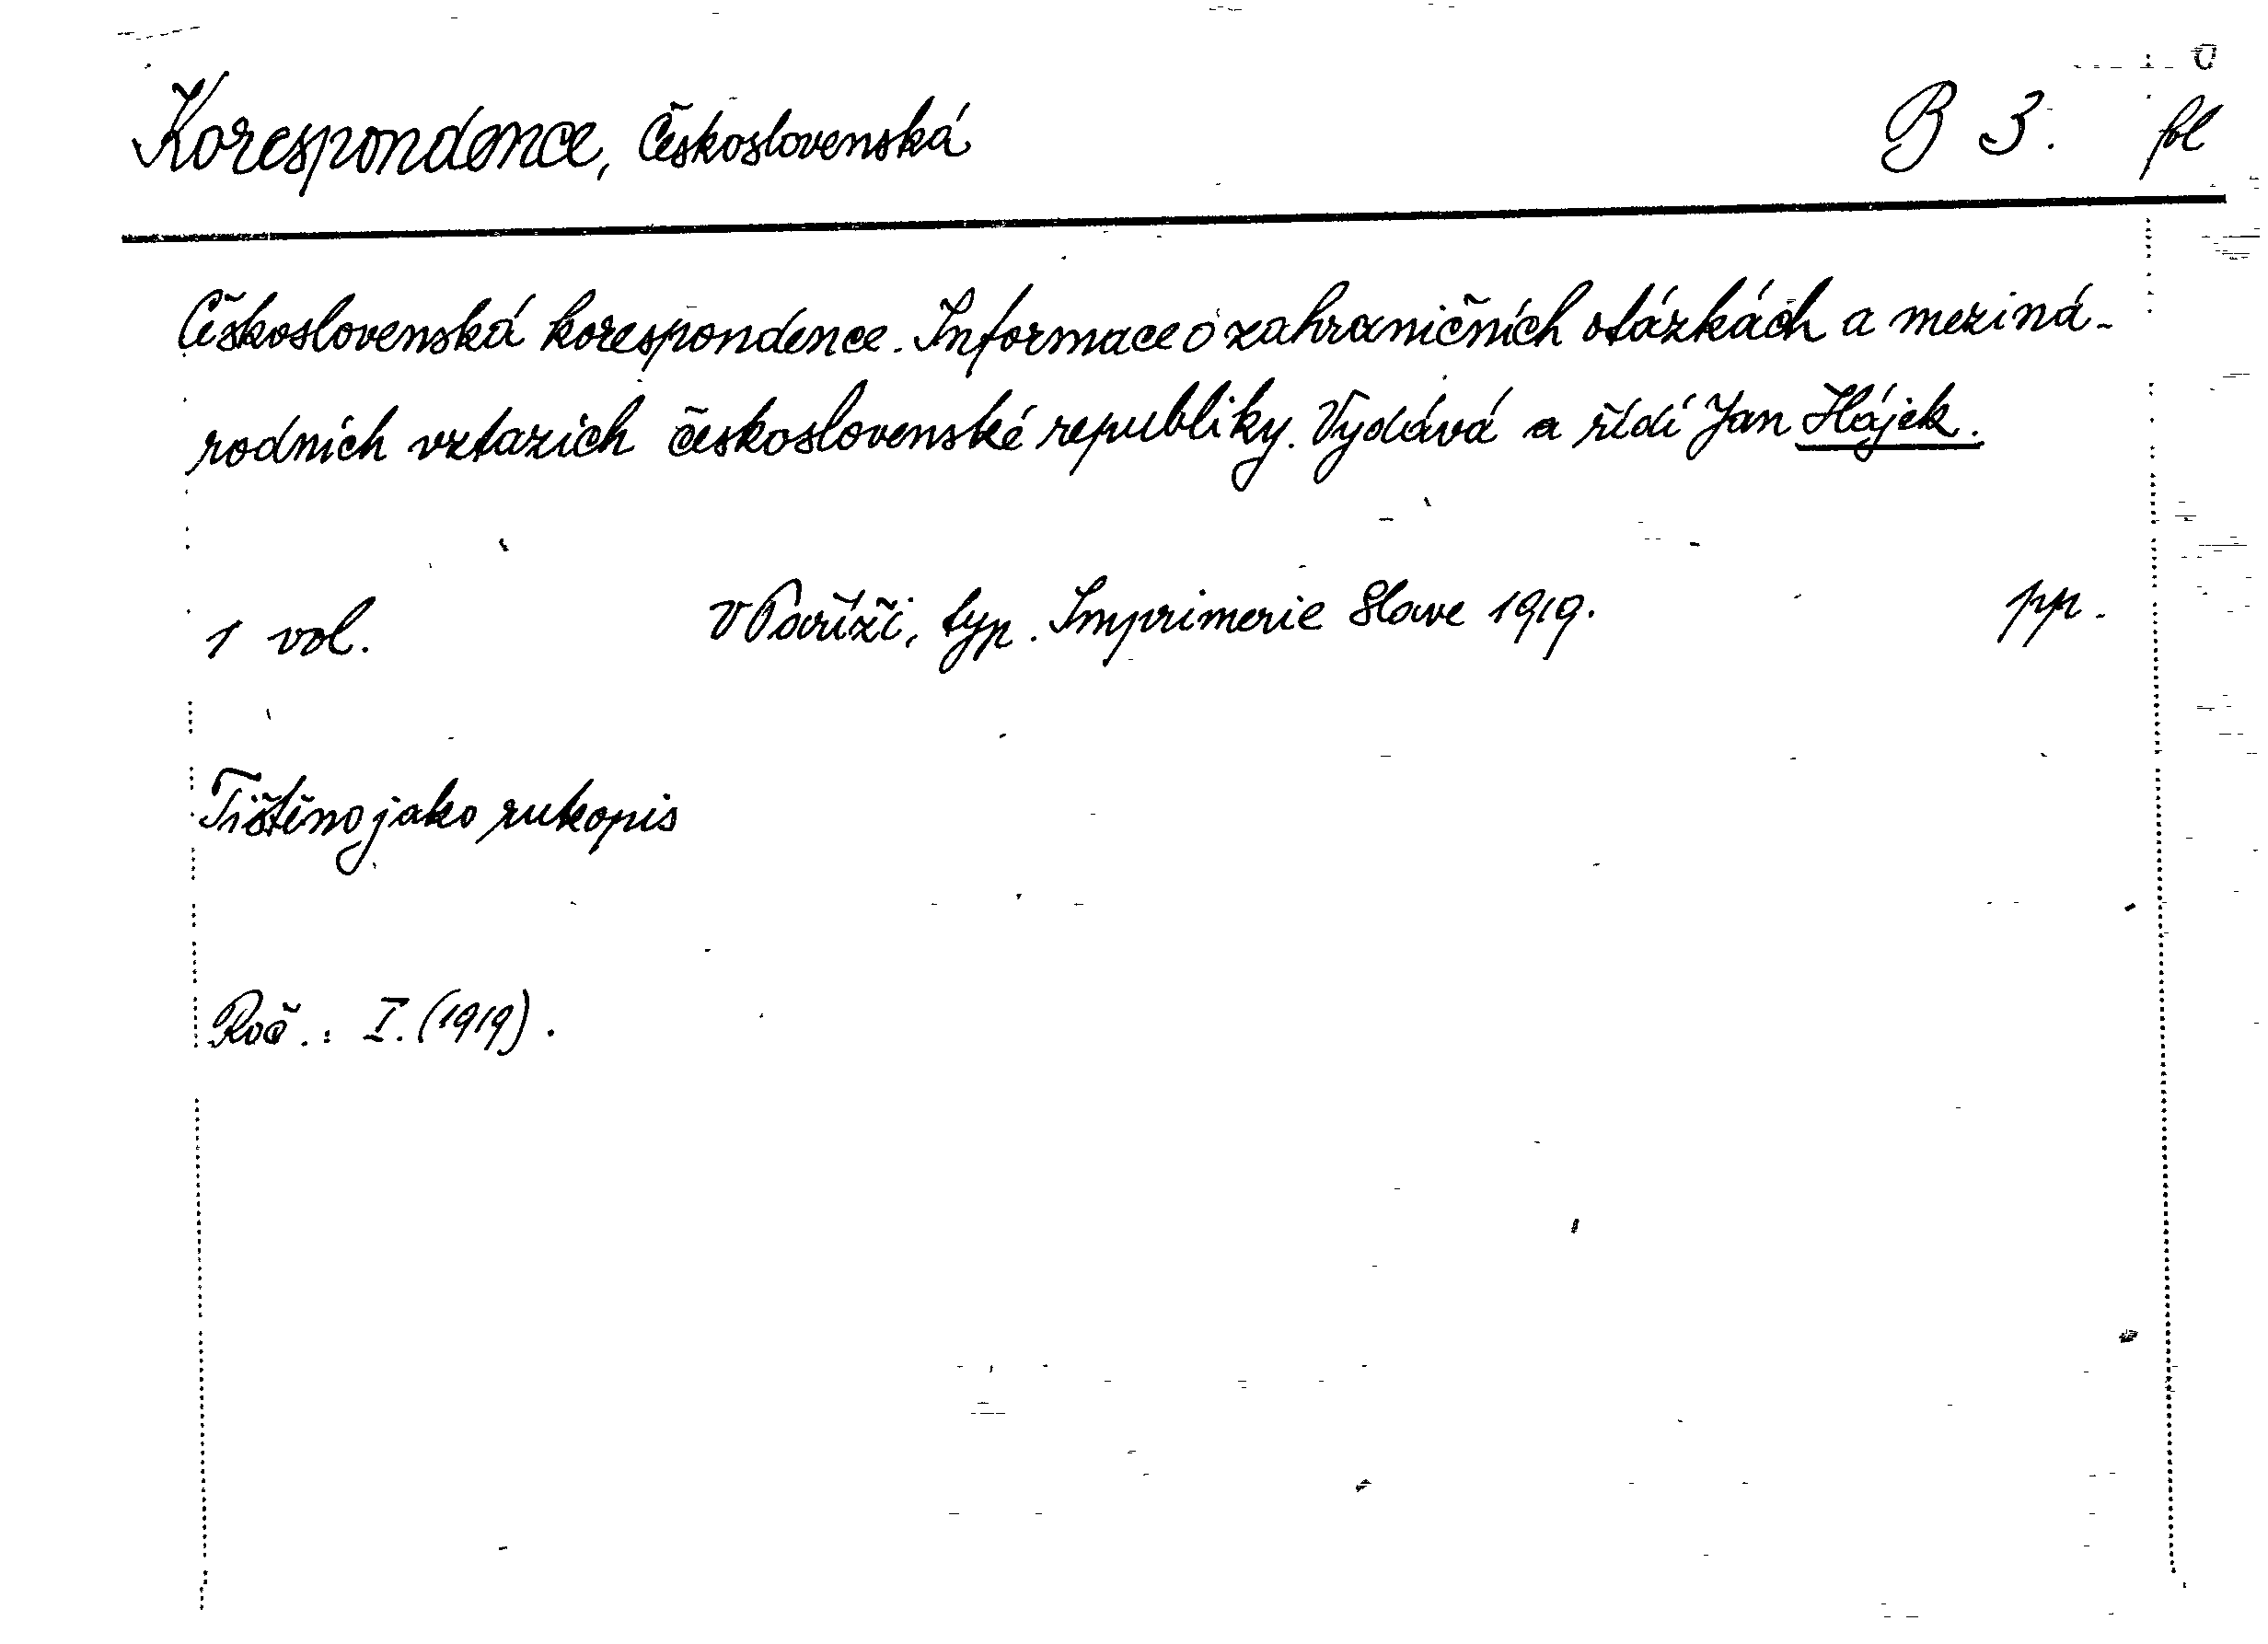 Korespondence, Československá B 3. fol
Československá korespondence. Informace o zahraničních otázkách a meziná-
rodních vztazích československé republiky. Vydává a řídí Jan Hájek.
1 vol. V Paříži, typ. Imprimerie Slave 1919. pp.
Tištěno jako rukopis
Roč.: I. (1919).